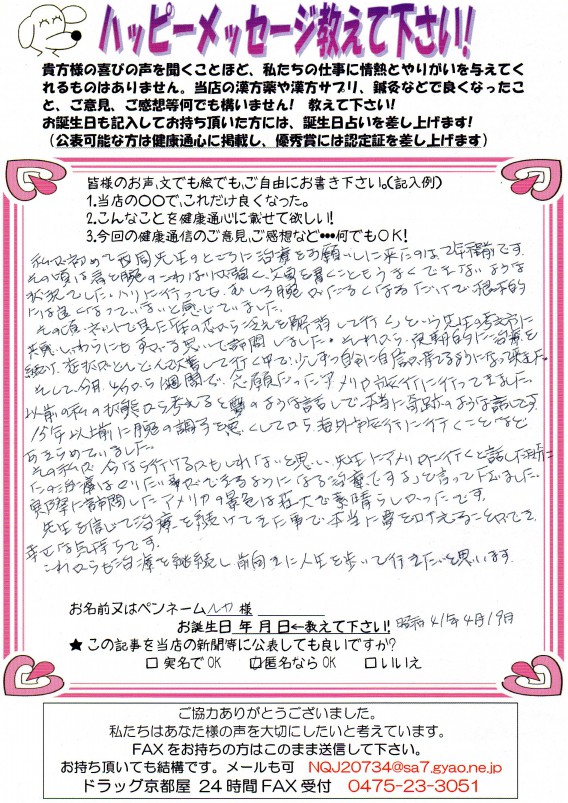 ハッピーメッセージ教えて下さい!
貴方様の喜びの声を聞くことほど、私たちの仕事に情熱とやりがいを与えてく
れるものはありません。当店の漢方薬や漢方サプリ、鍼灸などで良くなったこ
と、ご意見、ご感想等何でも構いません! 教えて下さい!
お誕生日も記入してお持ち頂いた方には、誕生日占いを差し上げます!
(公表可能な方は健康通心に掲載し、優秀賞には認定証を差し上げます)
皆様のお声、文でも絵でも、ご自由にお書き下さい。(記入例)
1.当店の〇〇で、これだけ良くなった。
2.こんなことを健康通心に載せて欲しい!
3.今回の健康通信のご意見、ご感想など・・・何でもOK!
私が初めて西岡先生のところに治療をお願いしに来たのは、7年程前です。
その頃は肩と腕のこわばりが強く、文字を書くこともうまくできないような
状況でした。ハリに行っても、むしろ腕がだるくなるだけで根本的
には良くなっていないと感じていました。
その頃ネットで見た体の芯から冷えを解消して行くという先生の考え方に
共感し、わらにもすがる思いで訪問しました。それから、定期的に治療を
続け、症状がどんどん改善して行く中で、少しずつ自分に自信が持てるようになって来ました。
そして、今月、4から1週間で、念願だったアメリカ旅行に行ってきました。
以前の私の状態から考えると夢のような話しで、本当に奇跡のような話しです。
15年以上前に腕の調子を悪くしてから海外旅行に行くことなど
あきらめていました。
その私が、今なら行けるかもしれないと思い、先生にアメリカに行くと話した所に
「この治療はやりたい事ができるようになる治療ですよ」と言って下さいました。
実際に訪問したアメリカの景色は壮大で素晴らしかったです。
先生を信じて治療を続けてきた事で、本当に夢を叶えることができ、
幸せな気持ちです。
これからも治療を継続し、前向きに人生を歩いて行きたいと思います。
お名前又はペンネーム ルカ 様
お誕生日 年 月 日←教えて下さい! 昭和41年4月19日
★ この記事を当店の新聞等に公表しても良いですか?
□ 実名でOK ☑匿名ならOK □いいえ
ご協力ありがとうございました。
私たちはあなた様の声を大切にしたいと考えています。
FAXをお持ちの方はこのまま送信して下さい。
お持ち頂いても結構です。メールも可 NQJ20734@sa7.gyao.ne.jp
ドラッグ京都屋 24時間FAX受付 0475-23-3051